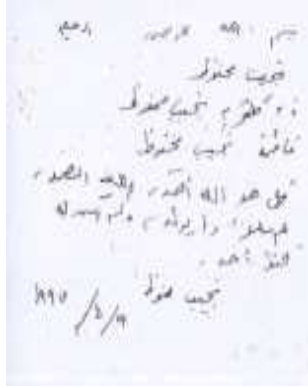 بسم الله الرحمن الرحيم
نجيب محفوظ
نجيب محفوظ
فاطمة نجيب محفوظ
قل هو الله أحد، الله الصمد،
لم يلد ولم يولد، ولم يكن له
كفوا أحد.
نجيب محفوظ